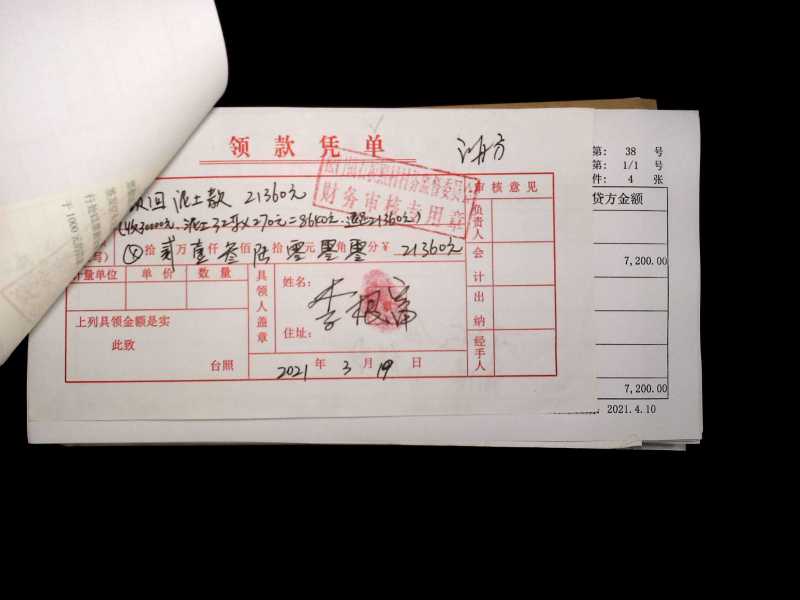 领款凭单
退回泥土款 21360元
(收30000元.泥土32车×270元=8640元.退回21360元)
财务审核专用章
拾贰万壹仟叁佰陆拾零元零角零分¥ 21360元
审核意见
负责人
会计
出纳
经手人
计量单位 单价 数量
具领人盖章
姓名:
住址:
上列具领金额是实
此致
台照
2021年3月19日
第: 38 号
第: 1/1 号
件: 4 张
贷方金额
7,200.00
7,200.00
2021.4.10